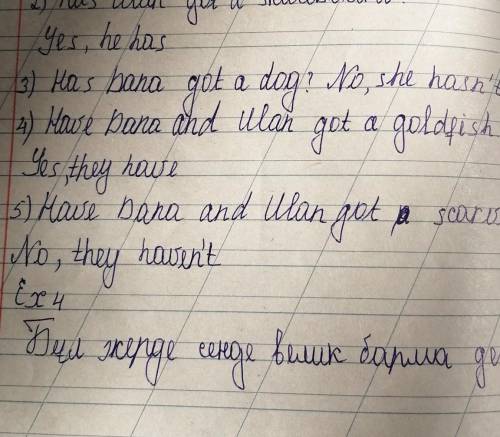 2) Has Ulan got a
Yes, he has
3) Has Dana got a dog? No, she hasn't
4) Have Dana and Ulan got a goldfish
Yes, they have
5) Have Dana and Ulan got
No, they haven't
Ex 4
Бұл жерде сенде велик барма